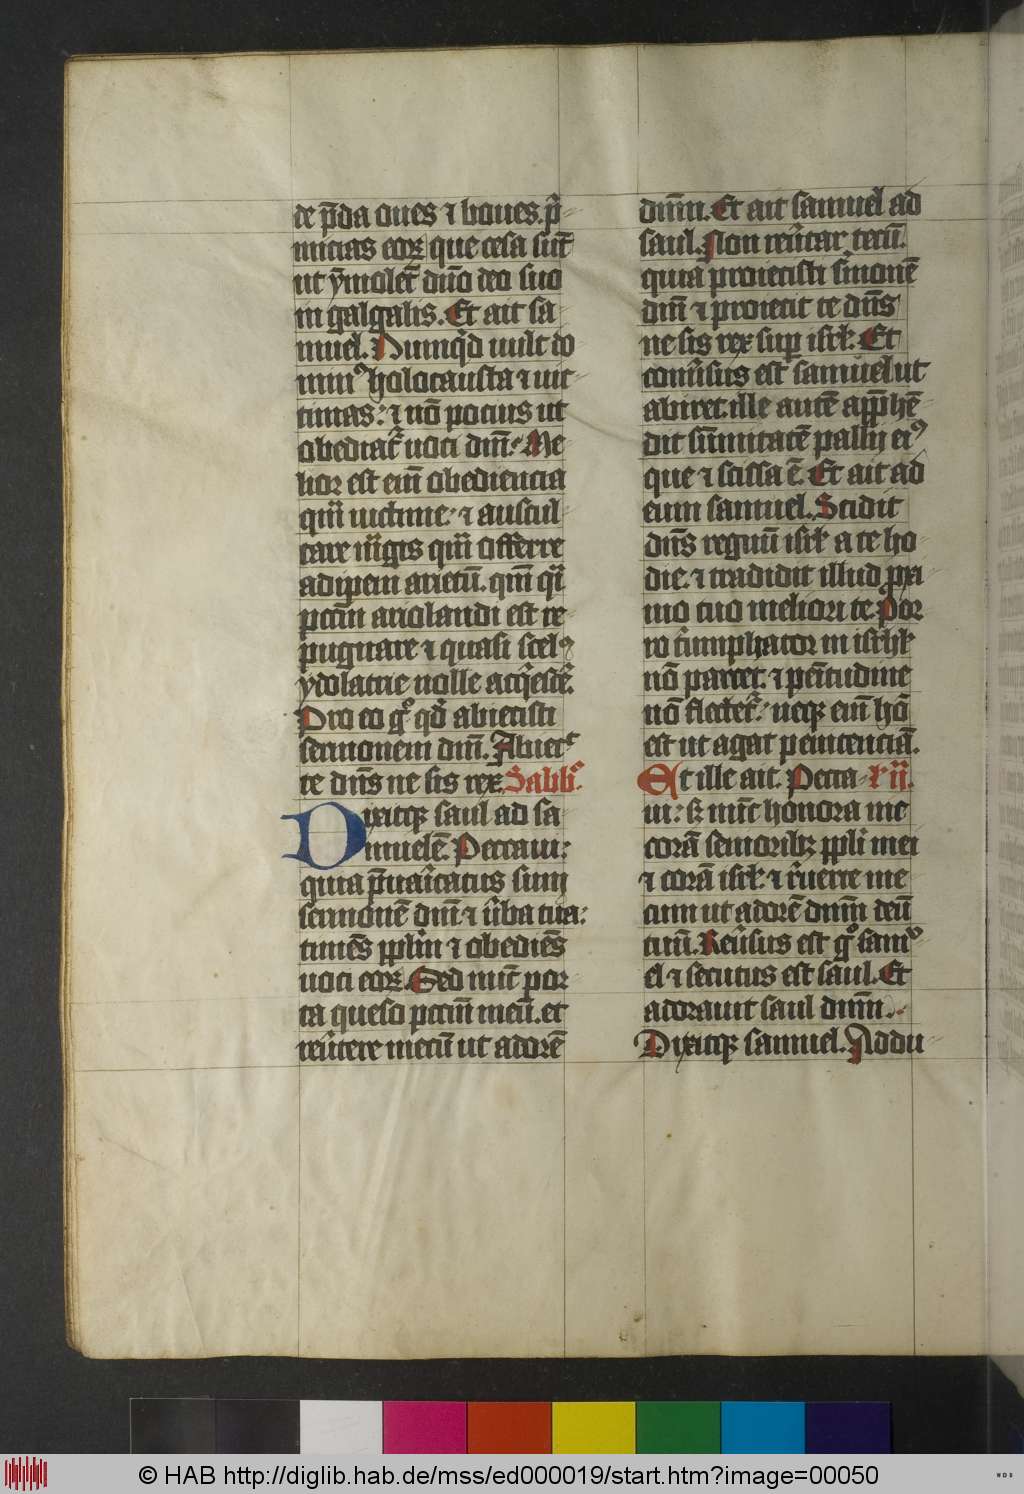 de p̄da oues ⁊ boues p̄i-
micias eoꝝ que cesa sūt
ut ymolet᷑ dn̄o deo suo
in galgalis. Et ait sa
muel. Nunq̄d uult do
minꝰ holocausta ⁊ uic-
timas: ⁊ nō pocius ut
obediat᷑ uoci dn̄i. Me
lior est eni̅ obediencia
qm̄ uictime: ⁊ auscul-
tare mḡis qm̄ offerre
adipem arietū. qm̄ q̄i
pctm̄ ariolandi est re-
pugnare ⁊ quasi scelꝰ
ydolatrie nolle acq̄esce̅.
Pro eo gͦ qd̄ abiecisti
sermonem dn̄i. Abiecᵗ
te dn̄s ne sis rex. Sabbͦ.
Dixitqꝫ saul ad sa
muelē. Peccaui:
quia p̄uaricatus sum
sermonē dn̄i ⁊ ūba tua:
timēs pplm̄ ⁊ obediēs
uoci eoꝝ. Sed nūc por
ta queso pctm̄ meū. et
reūtere mecū ut adorē
dn̄m. Et ait samuel ad
saul. Non reūtar tecū.
quia proiecisti s̄monē
dn̄i ⁊ proiecit te dn̄s
ne sis rex sup isrł. Et
conūsus est samuel ut
abiret. ille autē app̄hē-
dit su̅mitatē pallij eiꝰ
que ⁊ scissa ē. Et ait ad
eum samuel. Scidit
dn̄s regnū isrł a te ho-
die. ⁊ tradidit illud pxi-
mo tuo meliori te. Por
ro t̄umphator in isrhł
nō parcet. ⁊ peītudine
nō flectet᷑. neqꝫ eni̅ hō
est ut agat penitenciā.
At ille ait. Pecca- xij.
ui: sꝫ nūc honora me
corā senioribꝫ ppli mei
⁊ corā isrł. ⁊ r̄uertere me
cum ut adorē dn̄m deū
tuū. Reūsus est gͦ samᵛ
el ⁊ secutus est saul. Et
adorauit saul dn̄m.
Dixitqꝫ samuel. Addu-
© HAB http://diglib.hab.de/mss/ed000019/start.htm?image=00050